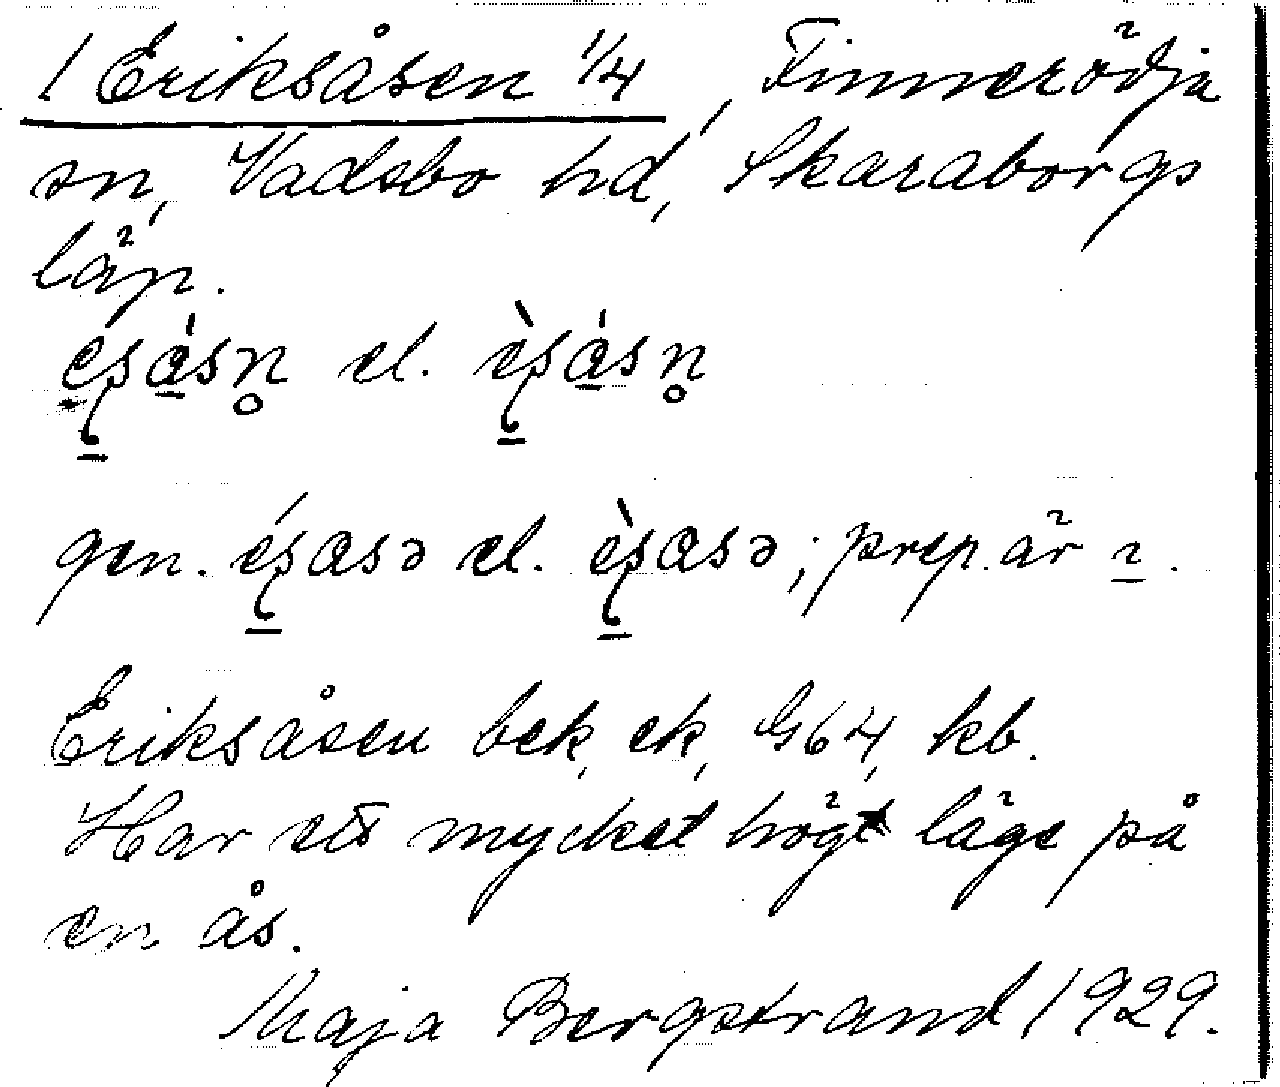 1 Eriksåsen 1/4, Finnerödja
sn, Vadsbo hd, Skaraborgs
län.
el.
gen. el. ; prep. är ı.
Eriksåsen bek, ek, G64, kb.
Har ett mycket högt läge på
en ås.
Maja Bergstrand 1929.